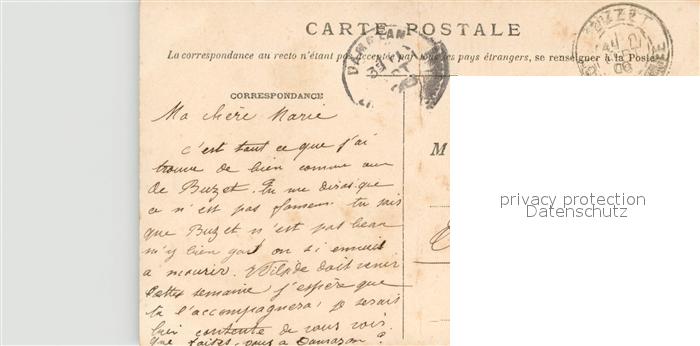 CARTE POSTALE
La correspondance au recto n'étant pas acceptée par tous les pays étrangers, se renseigner à la Poste
DAMAZAN
BUZET
CORRESPONDANCE
Ma chère Marie
c'est tout ce que j'ai
trouvé de bien comme vue
de Buzet. Tu me diras que
ce n'est pas fameux. tu sais
que Buzet n'est pas beau
n'y bien gai on si ennuie
a mourir. doit venir
cette semaine j'espère que
tu l'accompagneras; je serais
bien contente de vous voir.
Que faites-vous a Damazan?
M
privacy protection
Datenschutz